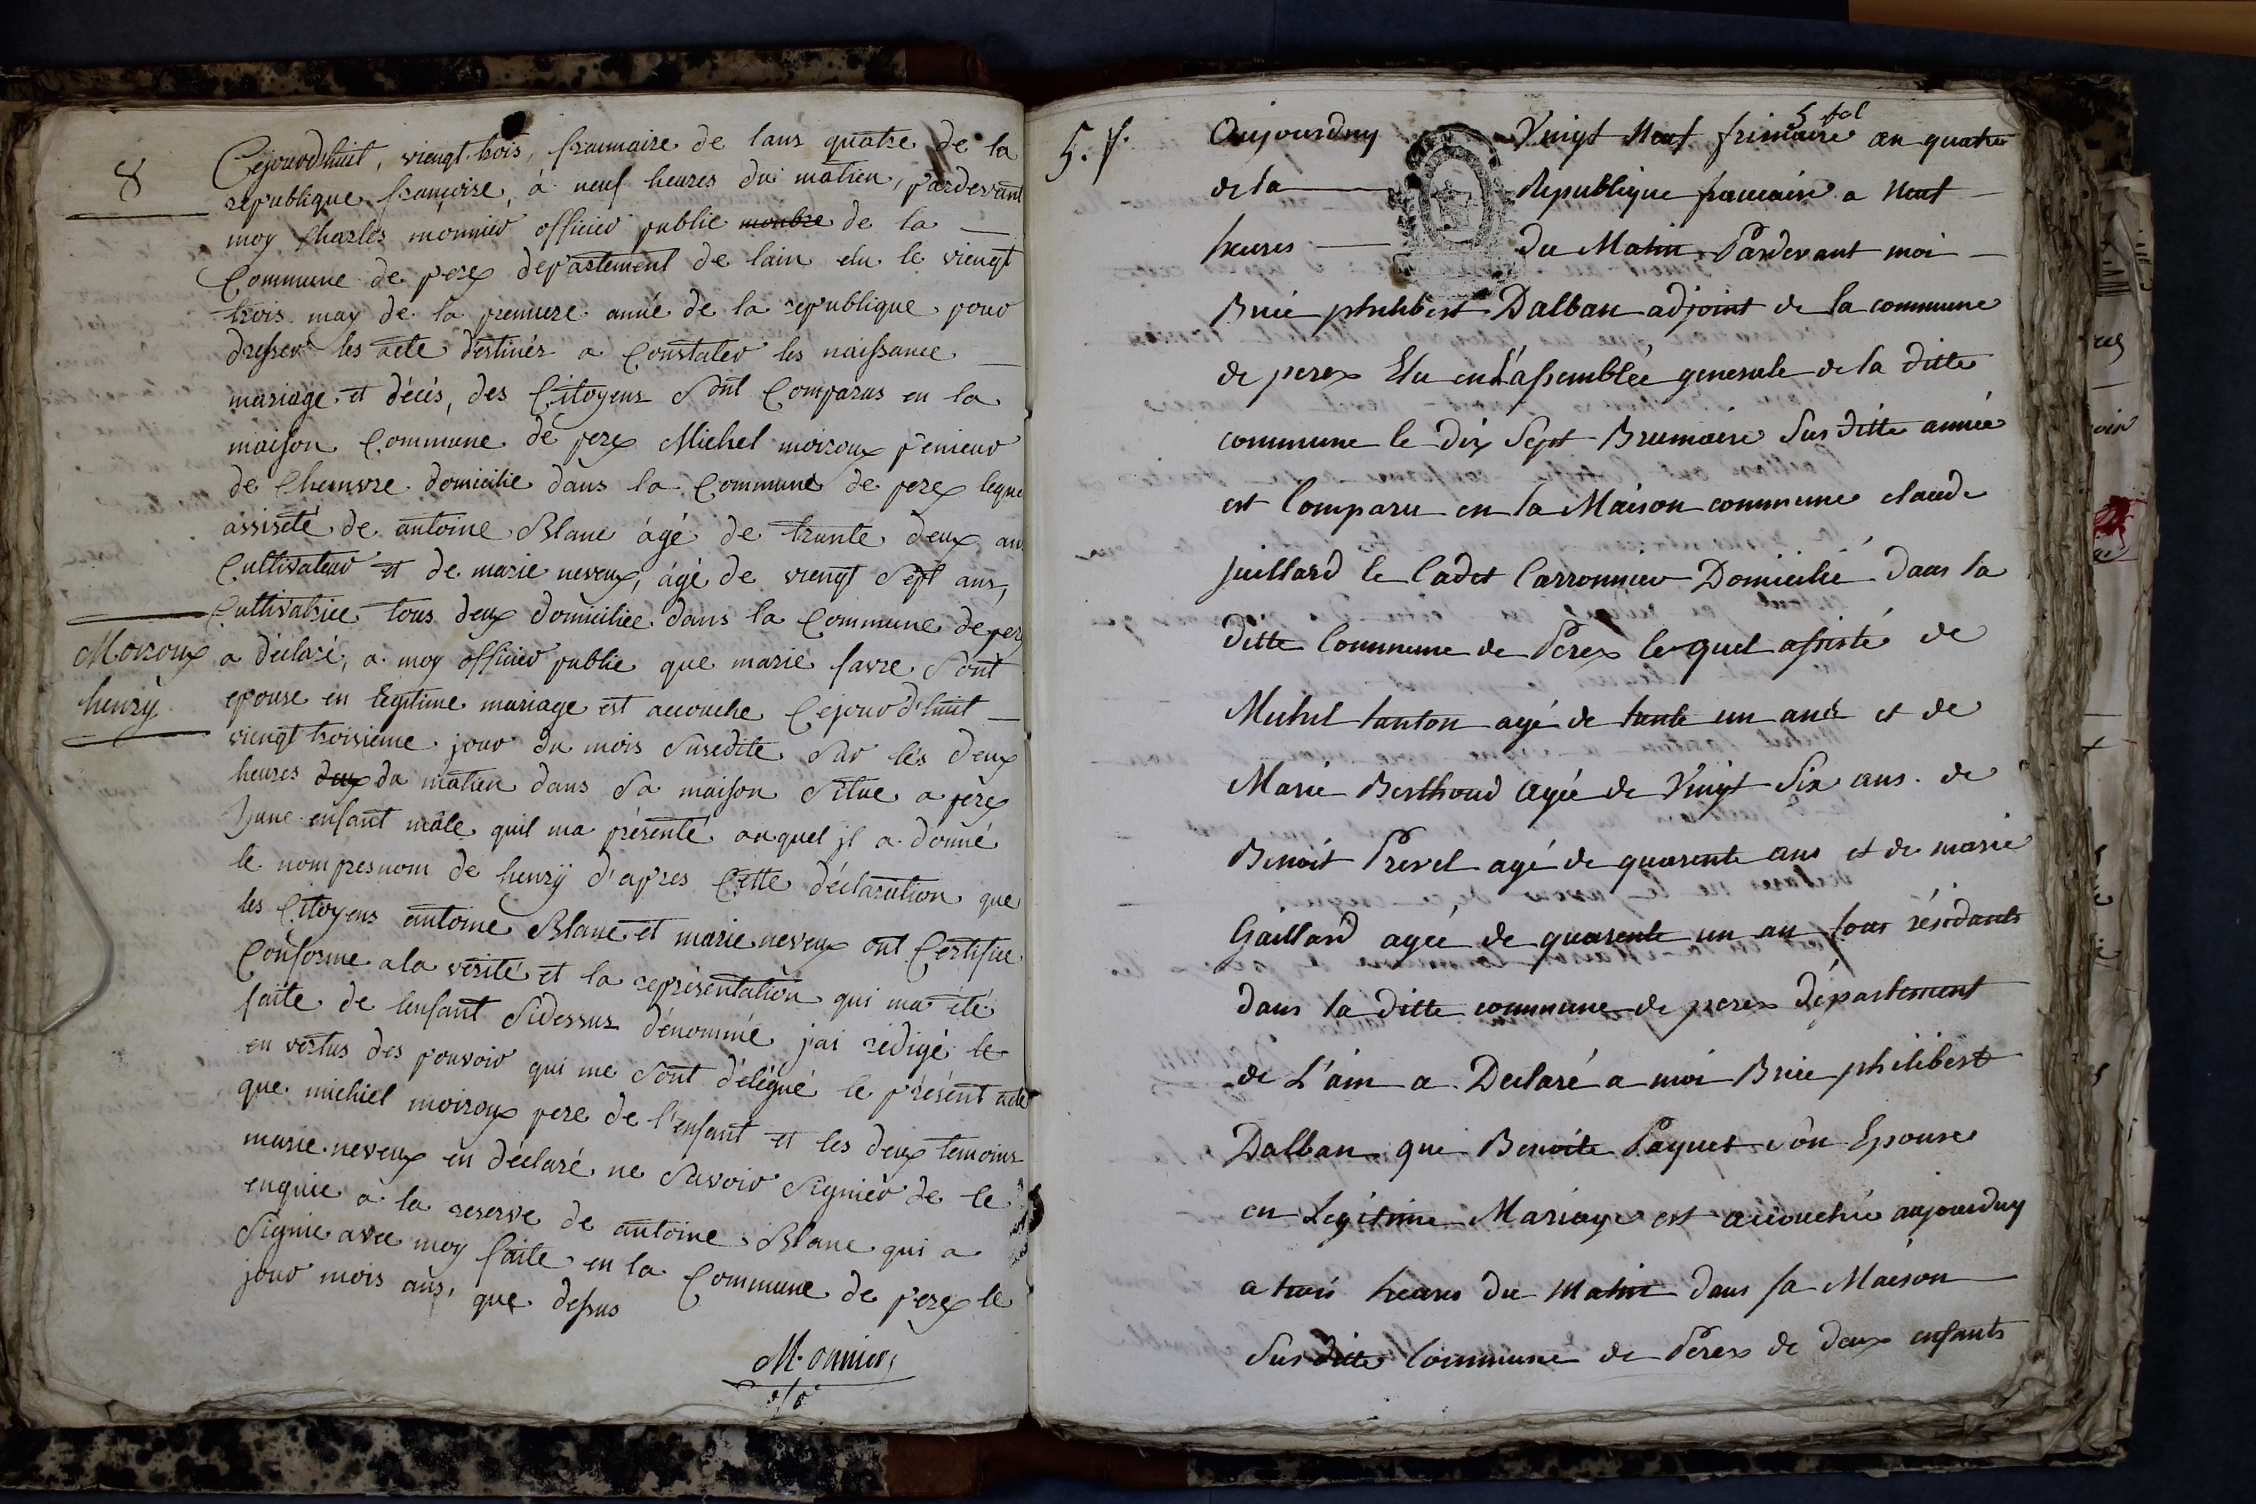 8
Cejourdhuit, viengt trois, fraumaire de lans quatre de la
republique françoise, à neuf heures du matien, pardevant
moy Charles monnier officier public membre de la
Commune de perex departement de lain elu le viengt
trois may de la premiere anné de la republique pour
dresser les acte destinér a Constater les naissance
mariage et décés, des Citoyens Sont Comparus en la
maison Commune de perex Michel moiroux penieur
de Chenvre domicilie dans la Commune de perex leque
assiseté de antoine Blanc ágé de trante deux an
Cultivateur et de marie neveux, ágé de viengt Sept ans,
Cultivatrice tous deux domiciliée dans la Commune de perex
Moiroux
henry
a déclaré, a moy officier public que marie favre Sont
epouse en legitime mariage est accouche Cejourdhuit
viengt troisieme jour du mois Susedite Sur les deux
heures deux du matien dans Sa maison Situe a perex
Dune enfant mâle quil ma présenté auquel jl a donné
le nom presnom de henrÿ d'apres Cette déclaration que
les Citoyens antoine Blanc et marie neveux ont Certifiee
Conforme a la verité et la representation qui ma été
faite de lenfant Sidessus dénommé j'ai redigé le
en vertus des pouvoir qui me Sont délégué le présent acte
que michiel moiroux pere de l'enfant et les deux temoins
marie neveux en déclaré ne Savoir Signier de le
enquie a la reserve de antoine Blanc qui a
Signie avec moy faite en la Commune de perex le
jour mois ans, que dessus
Monnier
5. f.
5 fol
Aujourduy Vingt Neuf frimaire an quatre
de la Republique francaise a Neuf
heures du Matin Pardevant moi
Brice philibert Dalban adjoint de la commune
de perex Elu en L'assemblée generale de la ditte
commune le Dix Sept Brumaire Sus ditte année
est Comparu en la Maison commune claude
juillard le Cadet Carronnier Domicilié dans la
ditte Commune de Perex le quel assisté de
Michel tanton agé de trente un ans et de
Marie Berthoud agée de Vingt Six ans de
Benoit Prevel agé de quarente ans et de marie
Gaillard agée de quarente un an tous résidants
dans la ditte commune de perex Département
de L'ain a Declaré a moi Brice philibert
Dalban que Benoite Paquet Son Epouse
en Legitime Mariage est accouchée aujourduy
a trois heures du Matin dans sa Maison
Sus ditte Commune de Perex de deux enfants